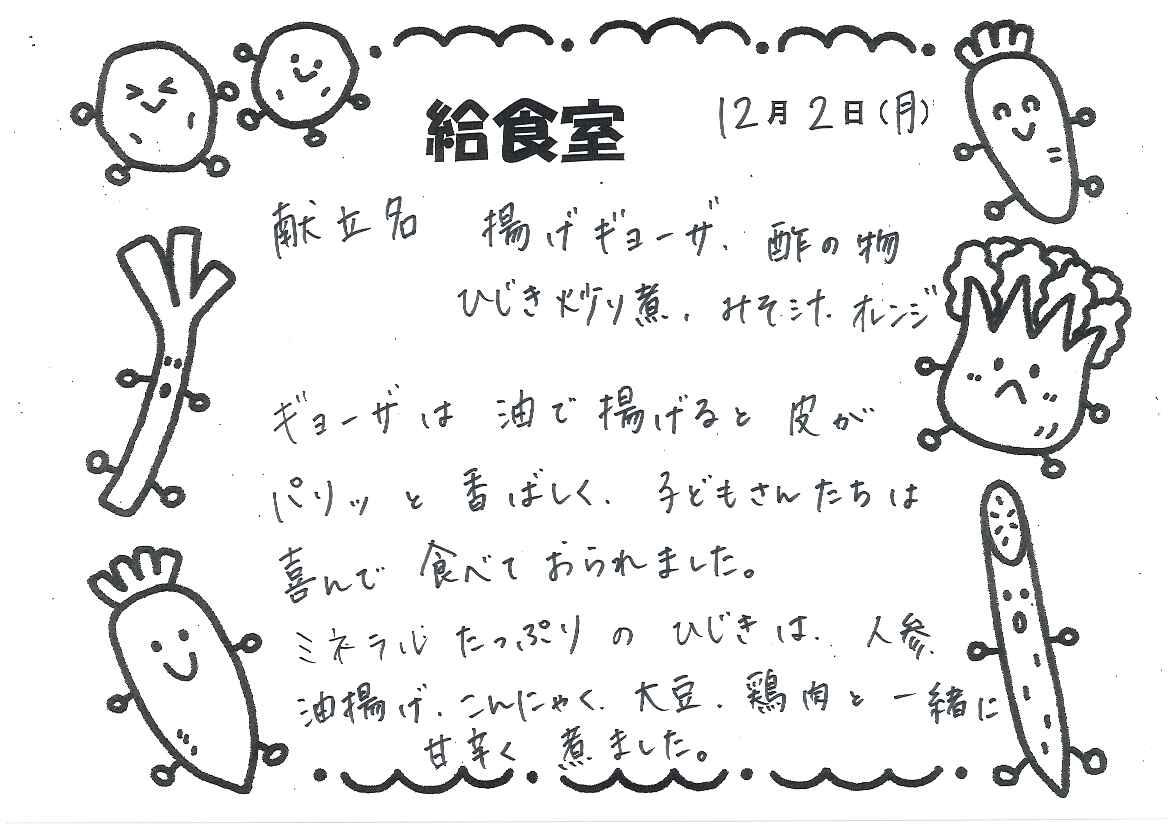 給食室 12月2日(月)
献立名 揚げギョーザ、酢の物
ひじき炒り煮、みそ汁、オレンジ
ギョーザは油で揚げると皮が
パリッと香ばしく、子どもさんたちは
喜んで食べておられました。
ミネラルたっぷりのひじきは、人参、
油揚げ、こんにゃく、大豆、鶏肉と一緒に
甘辛く煮ました。